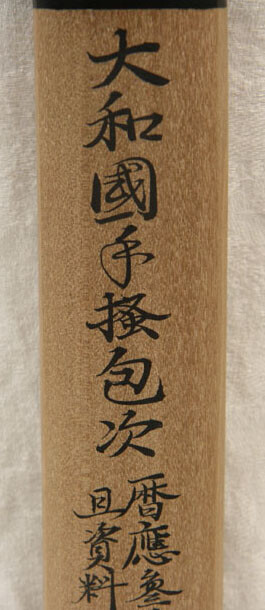 大和國手掻包次
暦應参
且資料